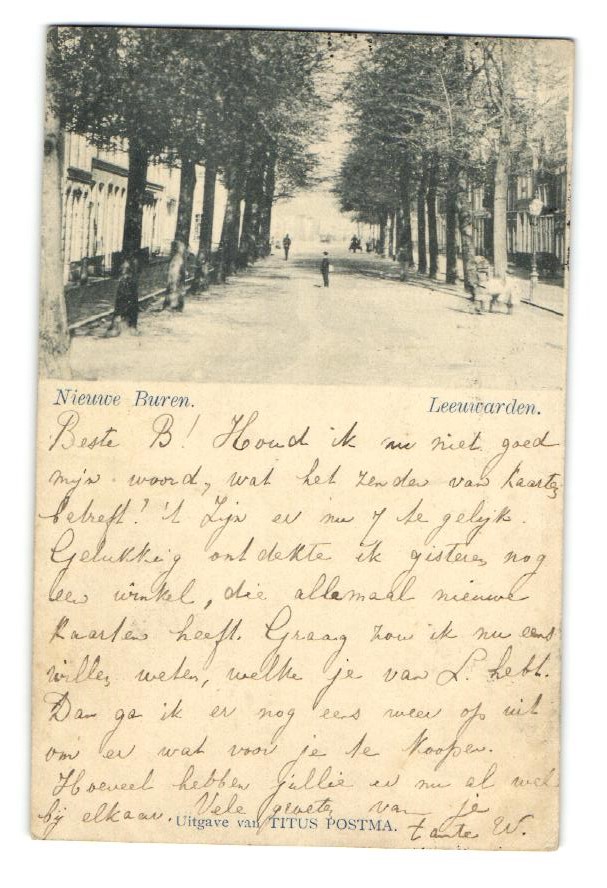 Nieuwe Buren. Leeuwarden.
Beste B! Houd ik nu niet goed
mijn woord, wat het zenden van kaarten
betreft? 't Zijn er nu 7 te gelijk.
Gelukkig ontdekte ik gisteren nog
een winkel, die allemaal nieuwe
kaarten heeft. Graag zou ik nu eens
willen weten, welke je van L. hebt.
Dan ga ik er nog eens weer op uit
om er wat voor je te koopen.
Hoeveel hebben jullie er nu al wel
bij elkaar. Vele groeten van je
tante W.
Uitgave van TITUS POSTMA.